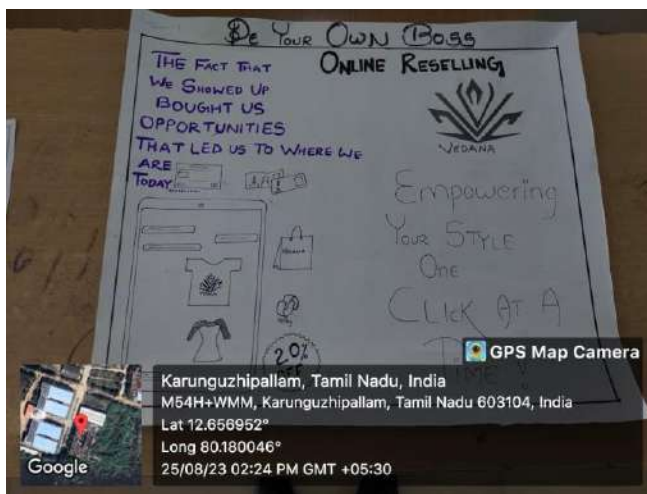 Be Your Own Boss
Online Reselling
The Fact That
We Showed Up
Bought Us
Opportunities
That Led Us To Where We
Are
Today
Vedana
Empowering
Your Style
One
Click At A
Time !
Vedana
20%
OFF
GPS Map Camera
Karunguzhipallam, Tamil Nadu, India
M54H+WMM, Karunguzhipallam, Tamil Nadu 603104, India
Lat 12.656952°
Long 80.180046°
25/08/23 02:24 PM GMT +05:30
Google